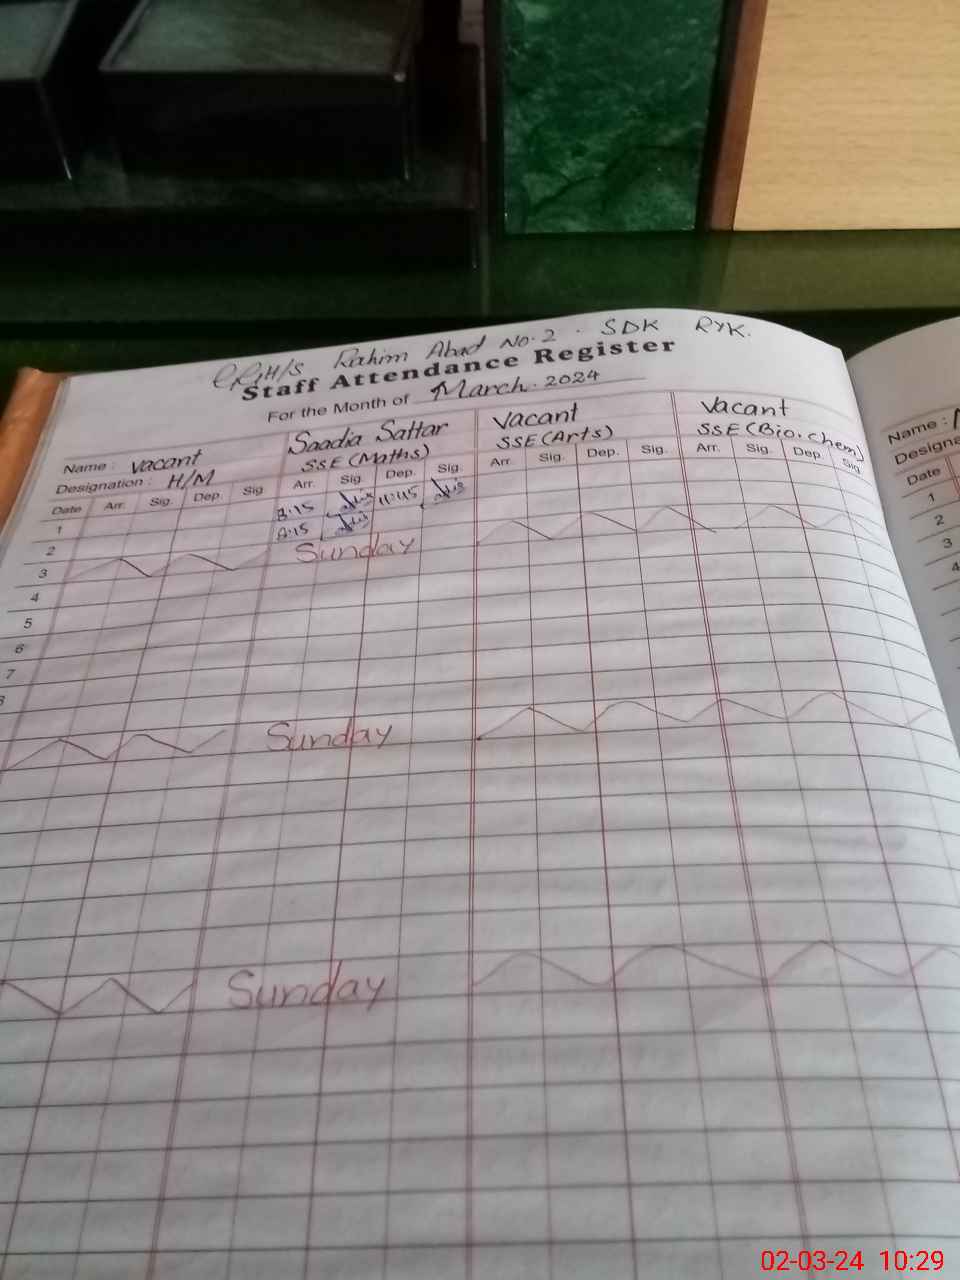 Rahim Abad No.2 . SDK RYK.
Staff Attendance Register
For the Month of March. 2024
Name : Vacant Saadia Sattar Vacant Vacant
Designation : H/M SSE (Maths) SSE (Arts) SSE (Bio. chem)
Date Arr. Sig. Dep. Sig Arr. Sig. Dep. Sig. Arr. Sig. Dep. Sig. Arr. Sig. Dep. Sig
1 8.15 11:45
2 8.15
3 Sunday
4
5
6
7
8
Sunday
Sunday
Name :
Designa
Date
1
2
3
4
02-03-24 10:29